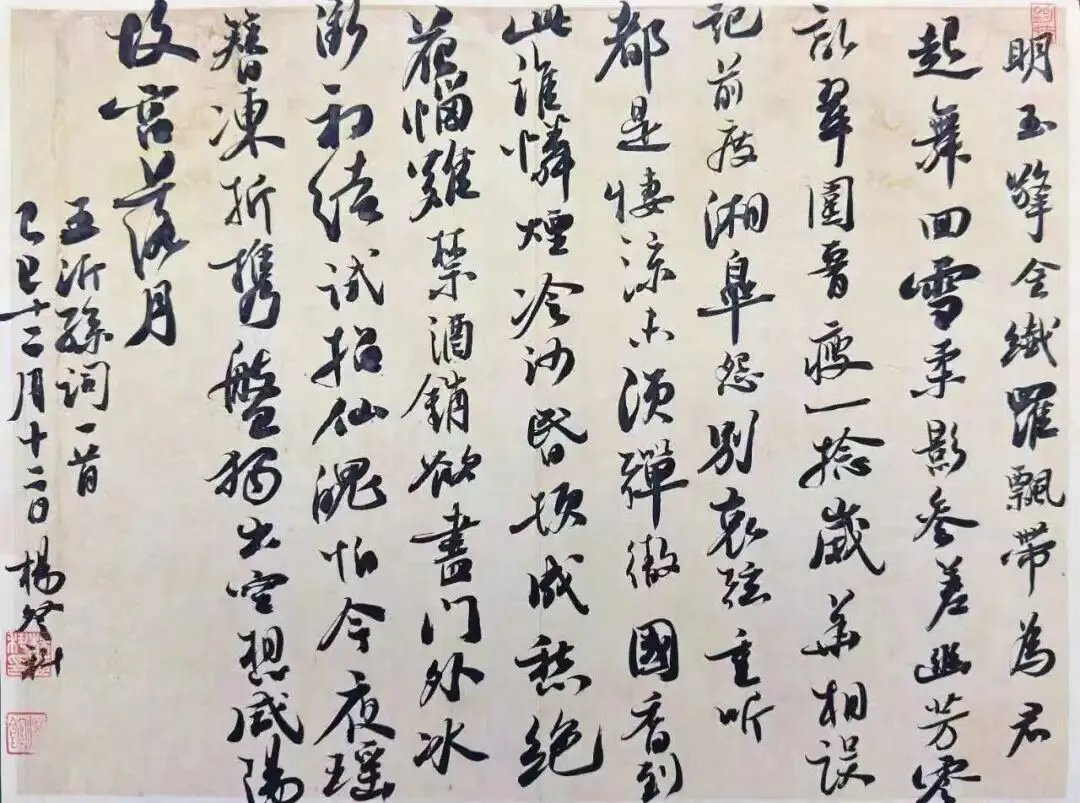 明玉擎金纖羅飄帶為君
起舞回雪柔影參差幽芳零
亂翠圍瘦一捻歲華相誤
記前度湘皋怨別哀弦重听
都是悽涼未須彈徹國香到
此誰憐煙冷沙昏頓成愁絕
花惱難禁酒銷欲盡門外冰
澌初結試招仙魄怕今夜瑤
簪凍折携盤獨出空想咸陽
故宮落月
王沂孫詞一首
乙巳十二月十二日 楊